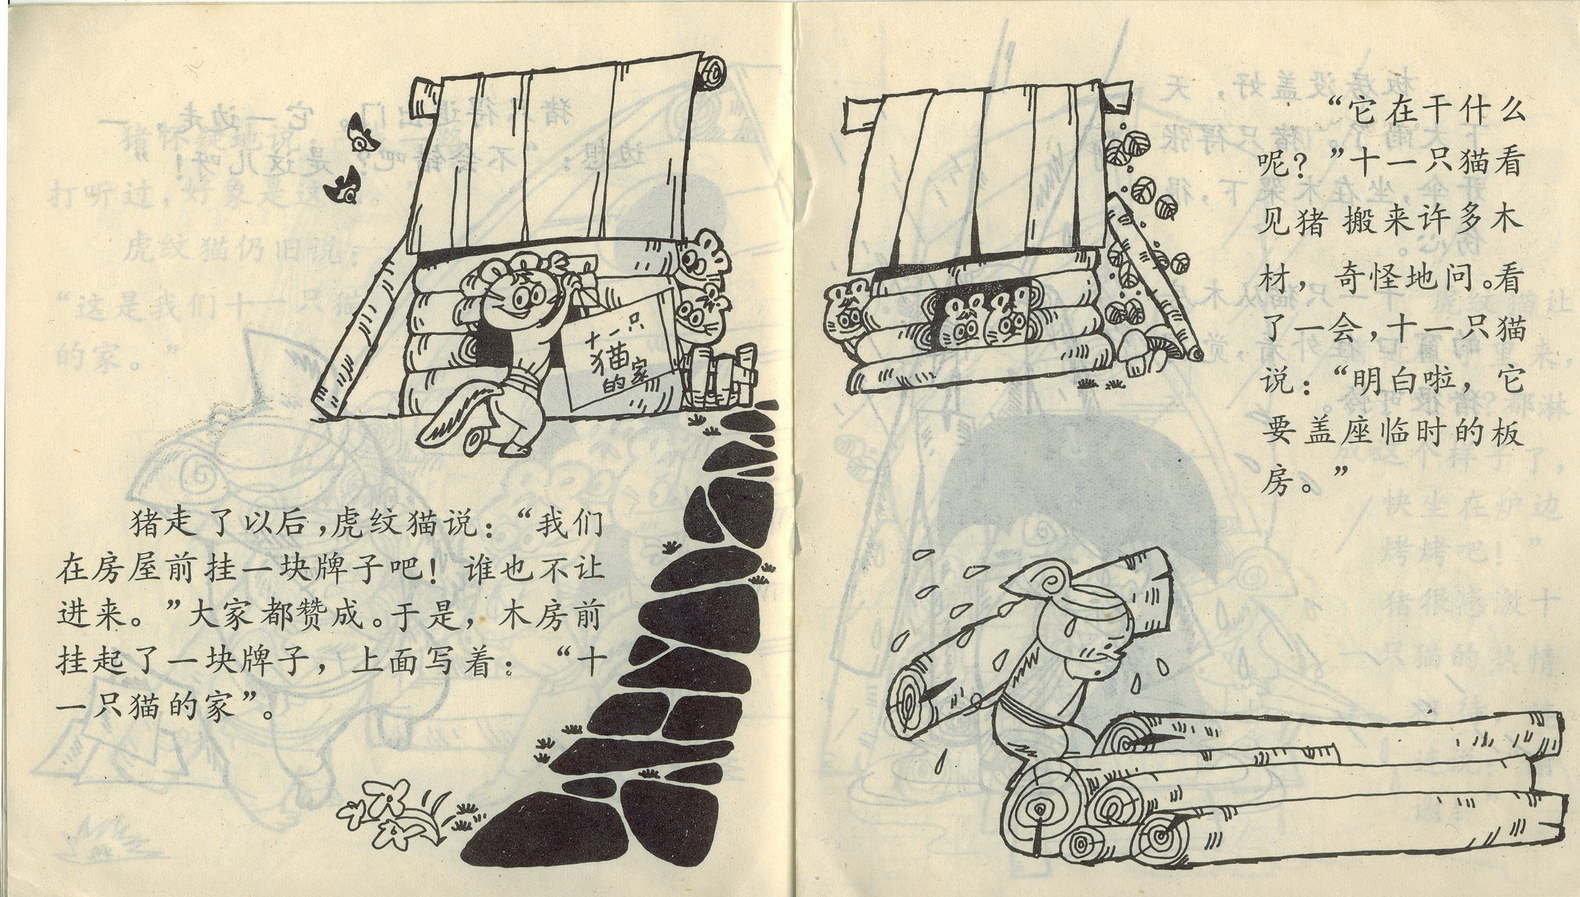 十一只
猫
的家
猪走了以后，虎纹猫说：“我们
在房屋前挂一块牌子吧！谁也不让
进来。”大家都赞成。于是，木房前
挂起了一块牌子，上面写着：“十
一只猫的家”。
“它在干什么
呢？”十一只猫看
见猪搬来许多木
材，奇怪地问。看
了一会，十一只猫
说：“明白啦，它
要盖座临时的板
房。”